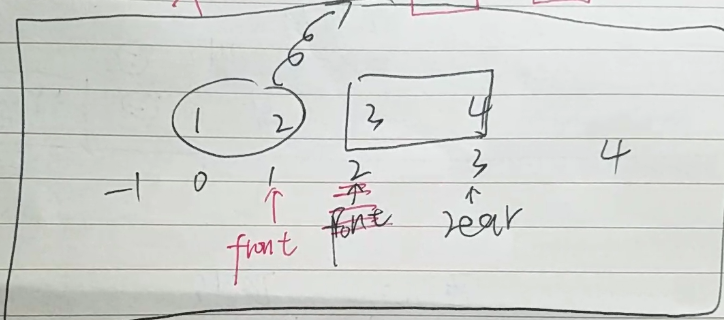 1 2 3 4
-1 0 1 2 3 4
front font rear